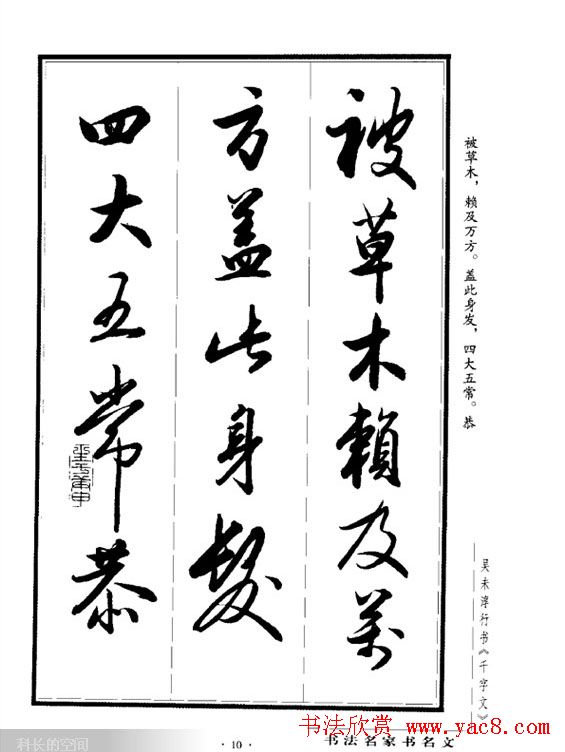 被草木賴及萬
方蓋此身髮
四大五常恭
被草木，赖及万方。盖此身发，四大五常。恭
吴未淳行书《千字文》
科长的空间
· 10 ·
书法名家书名文
书法欣赏 www.yac8.com